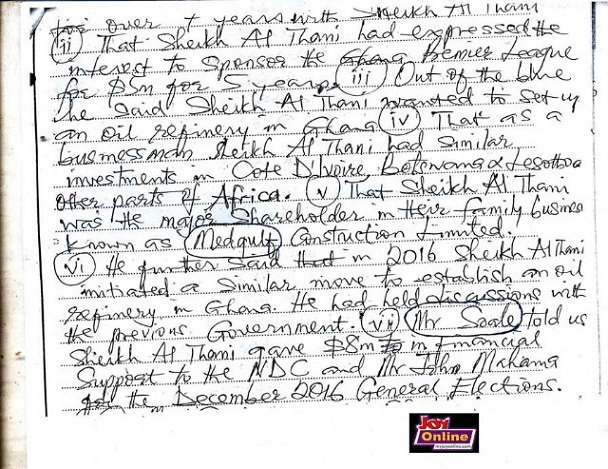 over 7 years with Sheikh Al Thani
(ii) That Sheikh Al Thani had expressed the
interest to sponsor the Ghana Premier League
for $5m for 5 years. (iii) Out of the blue
he said Sheikh Al Thani wanted to set-up
an oil refinery in Ghana (iv) That as a
businessman Sheikh Al Thani had similar
investments in Cote D'Ivoire, Botswana & Lesotho &
other parts of Africa. (v) That Sheikh Al Thani
was the major Shareholder in their family business
known as Medgulf Construction Limited.
(vi) He further said that in 2016 Sheikh Al Thani
initiated a similar move to establish an oil
refinery in Ghana. He had held discussions with
the previous Government. (vii) Mr Soale told us
Sheikh Al Thani gave $8m in Financial
Support to the NDC and Mr John Mahama
for the December 2016 General Elections.
Joy
Online
myjoyonline.com